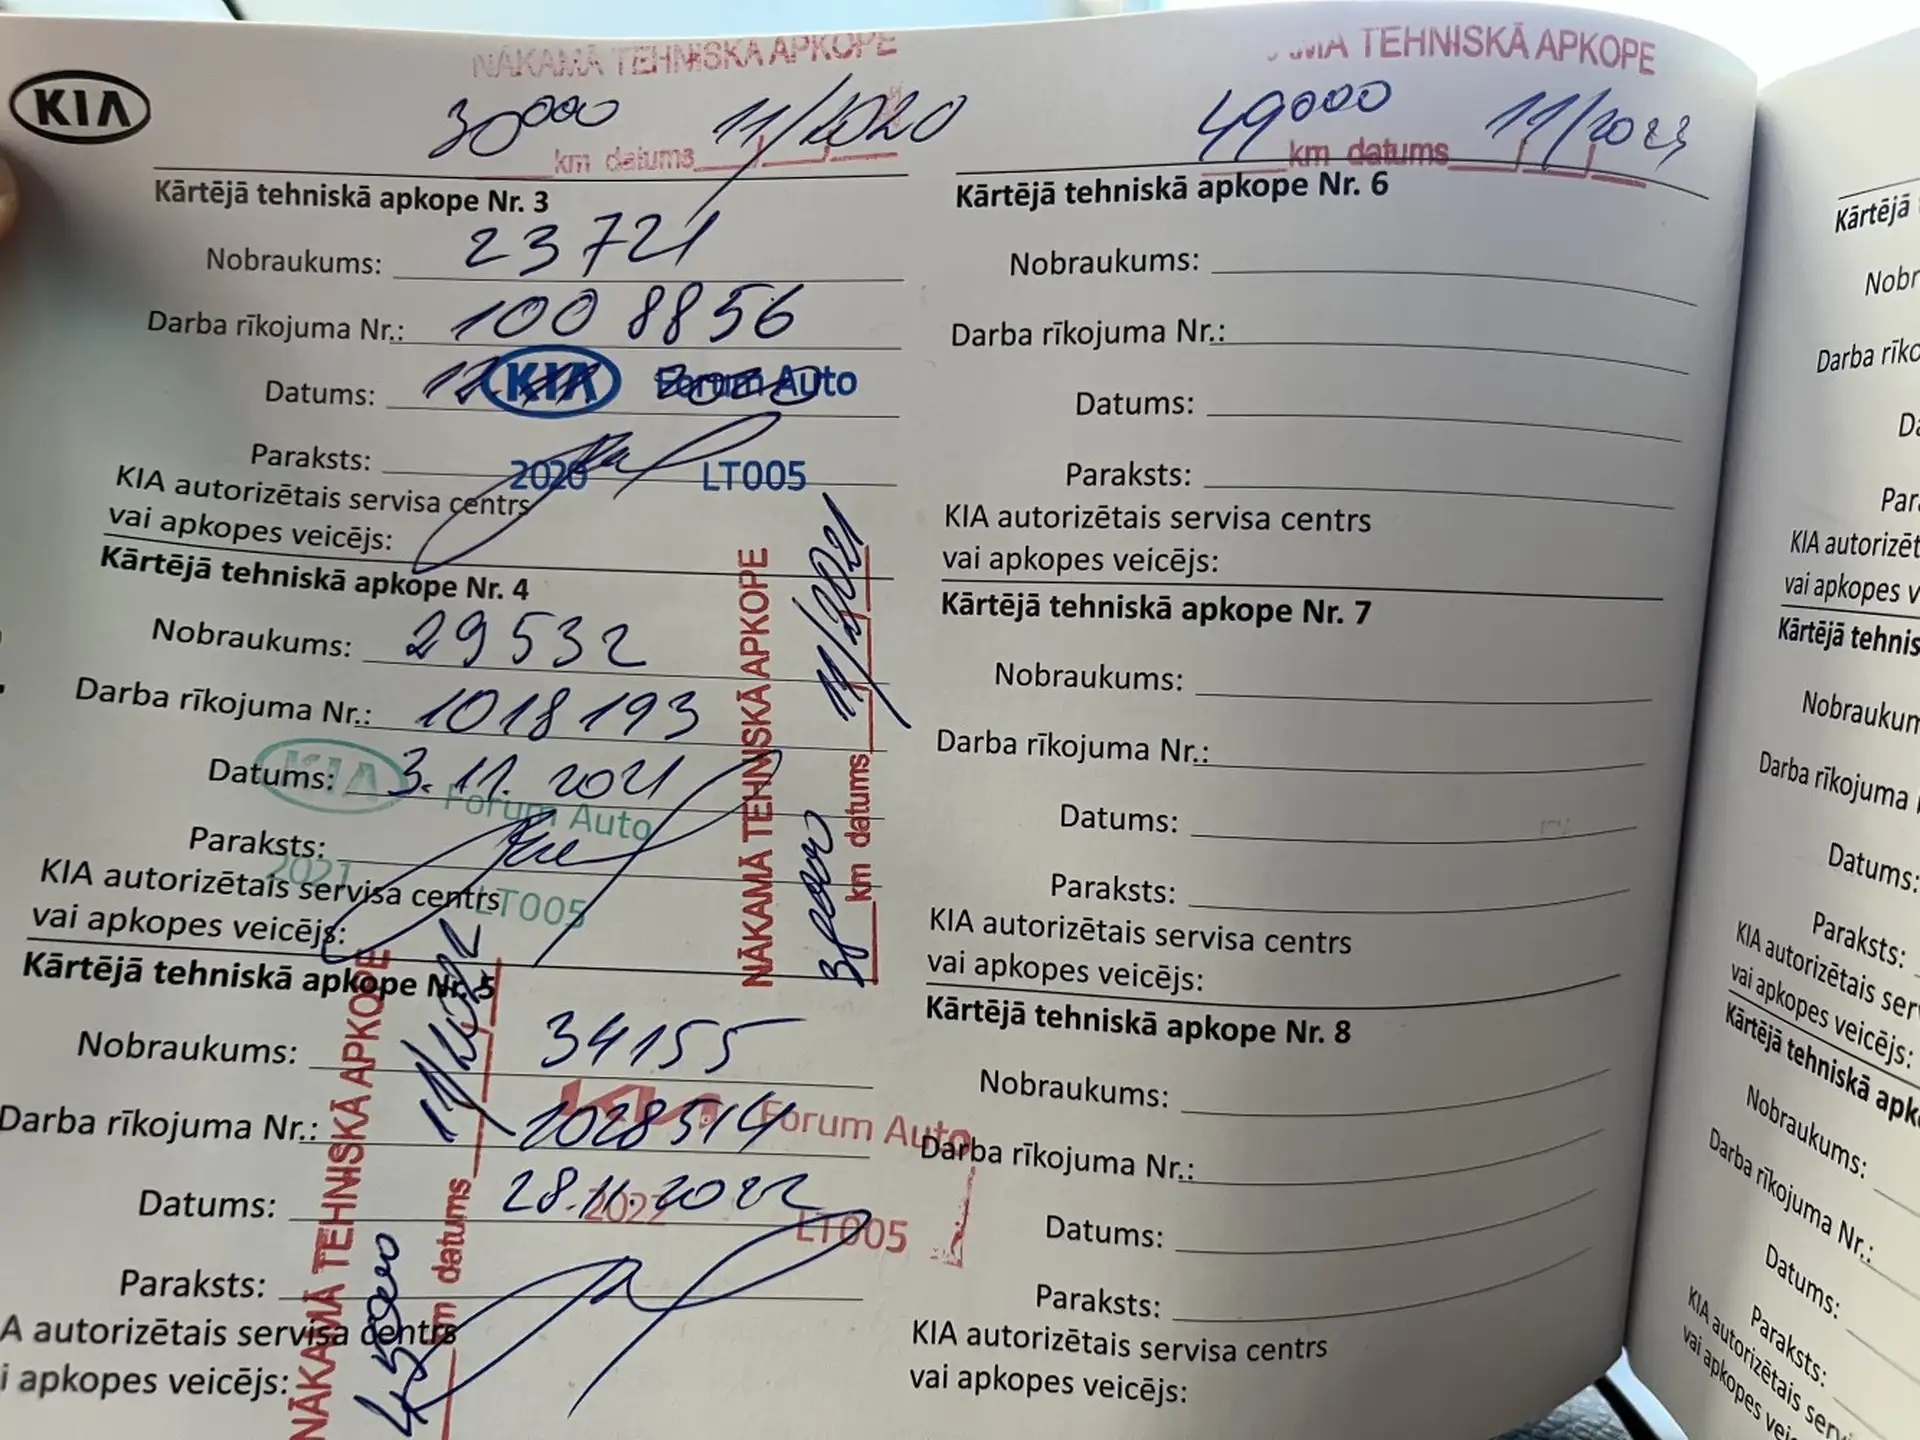 KIA
NĀKAMĀ TEHNISKĀ APKOPE
30000 11/2020
km datums
Kārtējā tehniskā apkope Nr. 3
Nobraukums: 23721
Darba rīkojuma Nr.: 1008856
Datums: 12.11.2020
KIA Forum Auto
Paraksts:
2020 LT005
KIA autorizētais servisa centrs
vai apkopes veicējs:
Kārtējā tehniskā apkope Nr. 4
Nobraukums: 29532
Darba rīkojuma Nr.: 1018193
Datums: 3.11.2021
KIA Forum Auto
Paraksts:
2021 LT005
KIA autorizētais servisa centrs
vai apkopes veicējs:
NĀKAMĀ TEHNISKĀ APKOPE
11/2021
km datums
Kārtējā tehniskā apkope Nr. 5
Nobraukums: 34155
Darba rīkojuma Nr.: 1028514
KIA Forum Auto
Datums: 28.11.2022
2022 LT005
Paraksts:
A autorizētais servisa centrs
i apkopes veicējs:
NĀKAMĀ TEHNISKĀ APKOPE
45000
km datums
TEHNISKĀ APKOPE
49000 11/2023
km datums
Kārtējā tehniskā apkope Nr. 6
Nobraukums:
Darba rīkojuma Nr.:
Datums:
Paraksts:
KIA autorizētais servisa centrs
vai apkopes veicējs:
Kārtējā tehniskā apkope Nr. 7
Nobraukums:
Darba rīkojuma Nr.:
Datums:
Paraksts:
KIA autorizētais servisa centrs
vai apkopes veicējs:
Kārtējā tehniskā apkope Nr. 8
Nobraukums:
Darba rīkojuma Nr.:
Datums:
Paraksts:
KIA autorizētais servisa centrs
vai apkopes veicējs:
Kārtējā
Nobr
Darba rīko
Da
Par
KIA autorizēt
vai apkopes v
Kārtējā tehnis
Nobraukum
Darba rīkojuma
Datums:
Paraksts:
KIA autorizētais ser
vai apkopes veicējs:
Kārtējā tehniskā apk
Nobraukums:
Darba rīkojuma Nr.:
Datums:
Paraksts:
KIA autorizētais servisa
vai apkopes vei